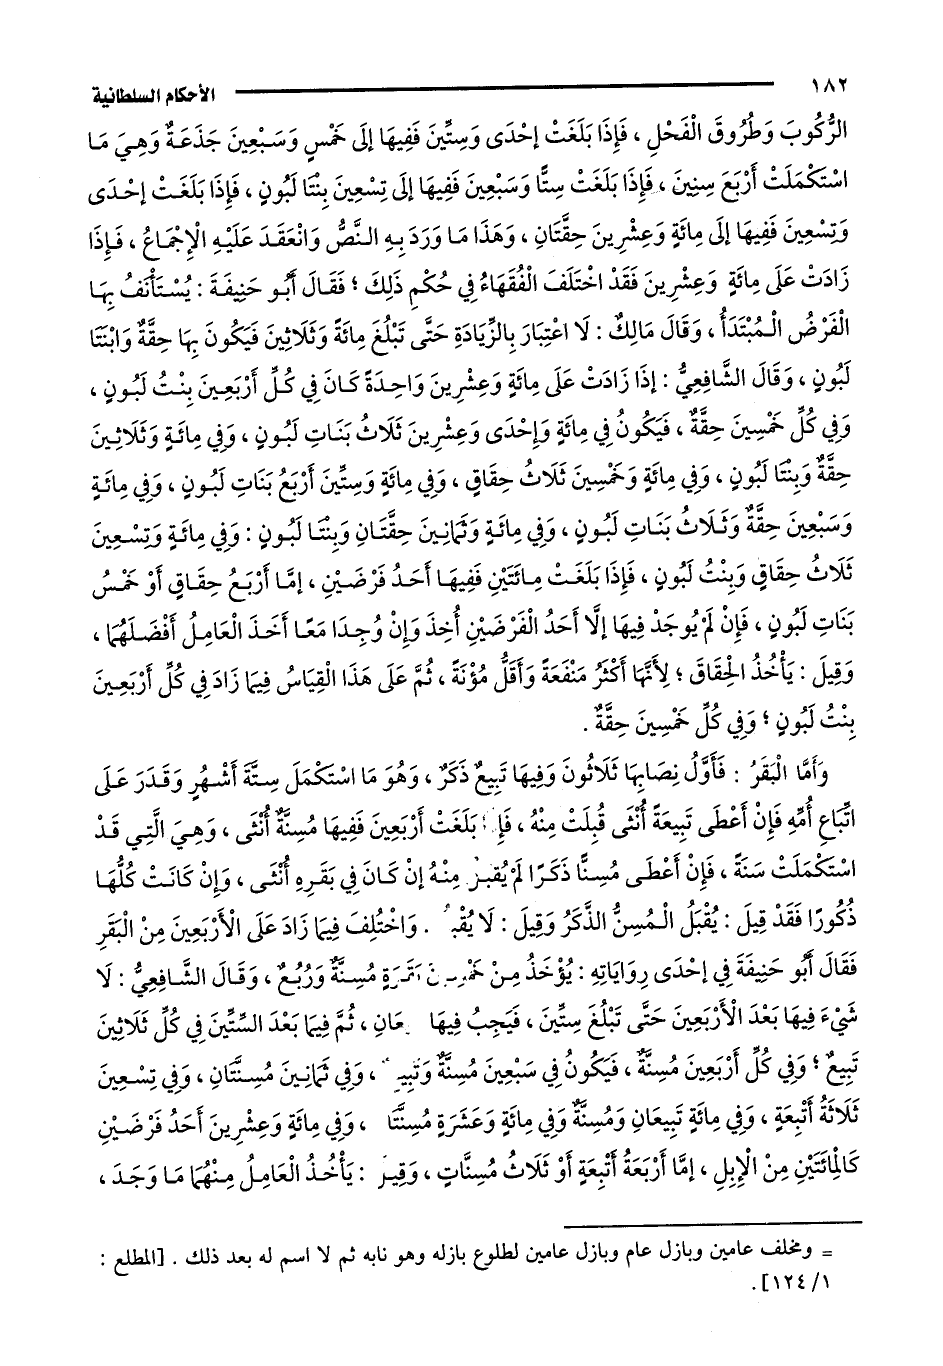 ١٨٢ الأحكام السلطانية
الرُّكُوبَ وَطُرُوقَ الْفَحْلِ ، فَإِذَا بَلَغَتْ إِحْدَى وَسِتِّينَ فَفِيهَا إِلَى خَمْسٍ وَسَبْعِينَ جَذَعَةٌ وَهِيَ مَا
اسْتَكْمَلَتْ أَرْبَعَ سِنِينَ ، فَإِذَا بَلَغَتْ سِتًّا وَسَبْعِينَ فَفِيهَا إِلَى تِسْعِينَ بِنْتَا لَبُونٍ ، فَإِذَا بَلَغَتْ إِحْدَى
وَتِسْعِينَ فَفِيهَا إِلَى مِائَةٍ وَعِشْرِينَ حِقَّتَانِ ، وَهَذَا مَا وَرَدَ بِهِ النَّصُّ وَانْعَقَدَ عَلَيْهِ الْإِجْمَاعُ ، فَإِذَا
زَادَتْ عَلَى مِائَةٍ وَعِشْرِينَ فَقَدْ اخْتَلَفَ الْفُقَهَاءُ فِي حُكْمِ ذَلِكَ ؛ فَقَالَ أَبُو حَنِيفَةَ : يُسْتَأْنَفُ بِهَا
الْفَرْضُ الْمُبْتَدَأُ ، وَقَالَ مَالِكٌ : لَا اعْتِبَارَ بِالزِّيَادَةِ حَتَّى تَبْلُغَ مِائَةً وَثَلَاثِينَ فَيَكُونَ بِهَا حِقَّةٌ وَابْنَتَا
لَبُونٍ ، وَقَالَ الشَّافِعِيُّ : إِذَا زَادَتْ عَلَى مِائَةٍ وَعِشْرِينَ وَاحِدَةً كَانَ فِي كُلِّ أَرْبَعِينَ بِنْتُ لَبُونٍ ،
وَفِي كُلِّ خَمْسِينَ حِقَّةٌ ، فَيَكُونُ فِي مِائَةٍ وَإِحْدَى وَعِشْرِينَ ثَلَاثُ بَنَاتِ لَبُونٍ ، وَفِي مِائَةٍ وَثَلَاثِينَ
حِقَّةٌ وَبِنْتَا لَبُونٍ ، وَفِي مِائَةٍ وَخَمْسِينَ ثَلَاثُ حِقَاقٍ ، وَفِي مِائَةٍ وَسِتِّينَ أَرْبَعُ بَنَاتِ لَبُونٍ ، وَفِي مِائَةٍ
وَسَبْعِينَ حِقَّةٌ وَثَلَاثُ بَنَاتِ لَبُونٍ ، وَفِي مِائَةٍ وَثَمَانِينَ حِقَّتَانِ وَبِنْتَا لَبُونٍ : وَفِي مِائَةٍ وَتِسْعِينَ
ثَلَاثُ حِقَاقٍ وَبِنْتُ لَبُونٍ ، فَإِذَا بَلَغَتْ مِائَتَيْنِ فَفِيهَا أَحَدُ فَرْضَيْنِ ، إِمَّا أَرْبَعُ حِقَاقٍ أَوْ خَمْسُ
بَنَاتِ لَبُونٍ ، فَإِنْ لَمْ يُوجَدْ فِيهَا إِلَّا أَحَدُ الْفَرْضَيْنِ أُخِذَ وَإِنْ وُجِدَا مَعًا أَخَذَ الْعَامِلُ أَفْضَلَهُمَا ،
وَقِيلَ : يَأْخُذُ الْحِقَاقَ ؛ لِأَنَّهَا أَكْثَرُ مَنْفَعَةً وَأَقَلُّ مُؤْنَةً ، ثُمَّ عَلَى هَذَا الْقِيَاسُ فِيمَا زَادَ فِي كُلِّ أَرْبَعِينَ
بِنْتُ لَبُونٍ ؛ وَفِي كُلِّ خَمْسِينَ حِقَّةٌ .
وَأَمَّا الْبَقَرُ : فَأَوَّلُ نِصَابِهَا ثَلَاثُونَ وَفِيهَا تَبِيعٌ ذَكَرٌ ، وَهُوَ مَا اسْتَكْمَلَ سِتَّةَ أَشْهُرٍ وَقَدَرَ عَلَى
اتِّبَاعِ أُمِّهِ فَإِنْ أَعْطَى تَبِيعَةً أُنْثَى قُبِلَتْ مِنْهُ ، بَلَغَتْ أَرْبَعِينَ فَفِيهَا مُسِنَّةٌ أُنْثَى ، وَهِيَ الَّتِي قَدْ
اسْتَكْمَلَتْ سَنَةً ، فَإِنْ أَعْطَى مُسِنًّا ذَكَرًا لَمْ مِنْهُ إِنْ كَانَ فِي بَقَرِهِ أُنْثَى ، وَإِنْ كَانَتْ كُلُّهَا
ذُكُورًا فَقَدْ قِيلَ : يُقْبَلُ الْمُسِنُّ الذَّكَرُ وَقِيلَ : لَا . وَاخْتُلِفَ فِيمَا زَادَ عَلَى الْأَرْبَعِينَ مِنْ الْبَقَرِ
فَقَالَ أَبُو حَنِيفَةَ فِي إِحْدَى رِوَايَاتِهِ : يُؤْخَذُ مِنْ مُسِنَّةٌ وَرُبُعٌ ، وَقَالَ الشَّافِعِيُّ : لَا
شَيْءَ فِيهَا بَعْدَ الْأَرْبَعِينَ حَتَّى تَبْلُغَ سِتِّينَ ، فَيَجِبُ فِيهَا ، ثُمَّ فِيمَا بَعْدَ السِّتِّينَ فِي كُلِّ ثَلَاثِينَ
تَبِيعٌ ؛ وَفِي كُلِّ أَرْبَعِينَ مُسِنَّةٌ ، فَيَكُونُ فِي سَبْعِينَ مُسِنَّةٌ ، وَفِي ثَمَانِينَ مُسِنَّتَانِ ، وَفِي تِسْعِينَ
ثَلَاثَةُ أَتْبِعَةٍ ، وَفِي مِائَةٍ تَبِيعَانِ وَمُسِنَّةٌ وَفِي مِائَةٍ وَعَشَرَةٍ ، وَفِي مِائَةٍ وَعِشْرِينَ أَحَدُ فَرْضَيْنِ
كَالْمِائَتَيْنِ مِنْ الْإِبِلِ ، إِمَّا أَرْبَعَةُ أَتْبِعَةٍ أَوْ ثَلَاثُ مُسِنَّاتٍ ، : يَأْخُذُ الْعَامِلُ مِنْهُمَا مَا وَجَدَ ،
= ومخلف عامين وبازل عام وبازل عامين لطلوع بازله وهو نابه ثم لا اسم له بعد ذلك . [المطلع :
١٢٤/١] .